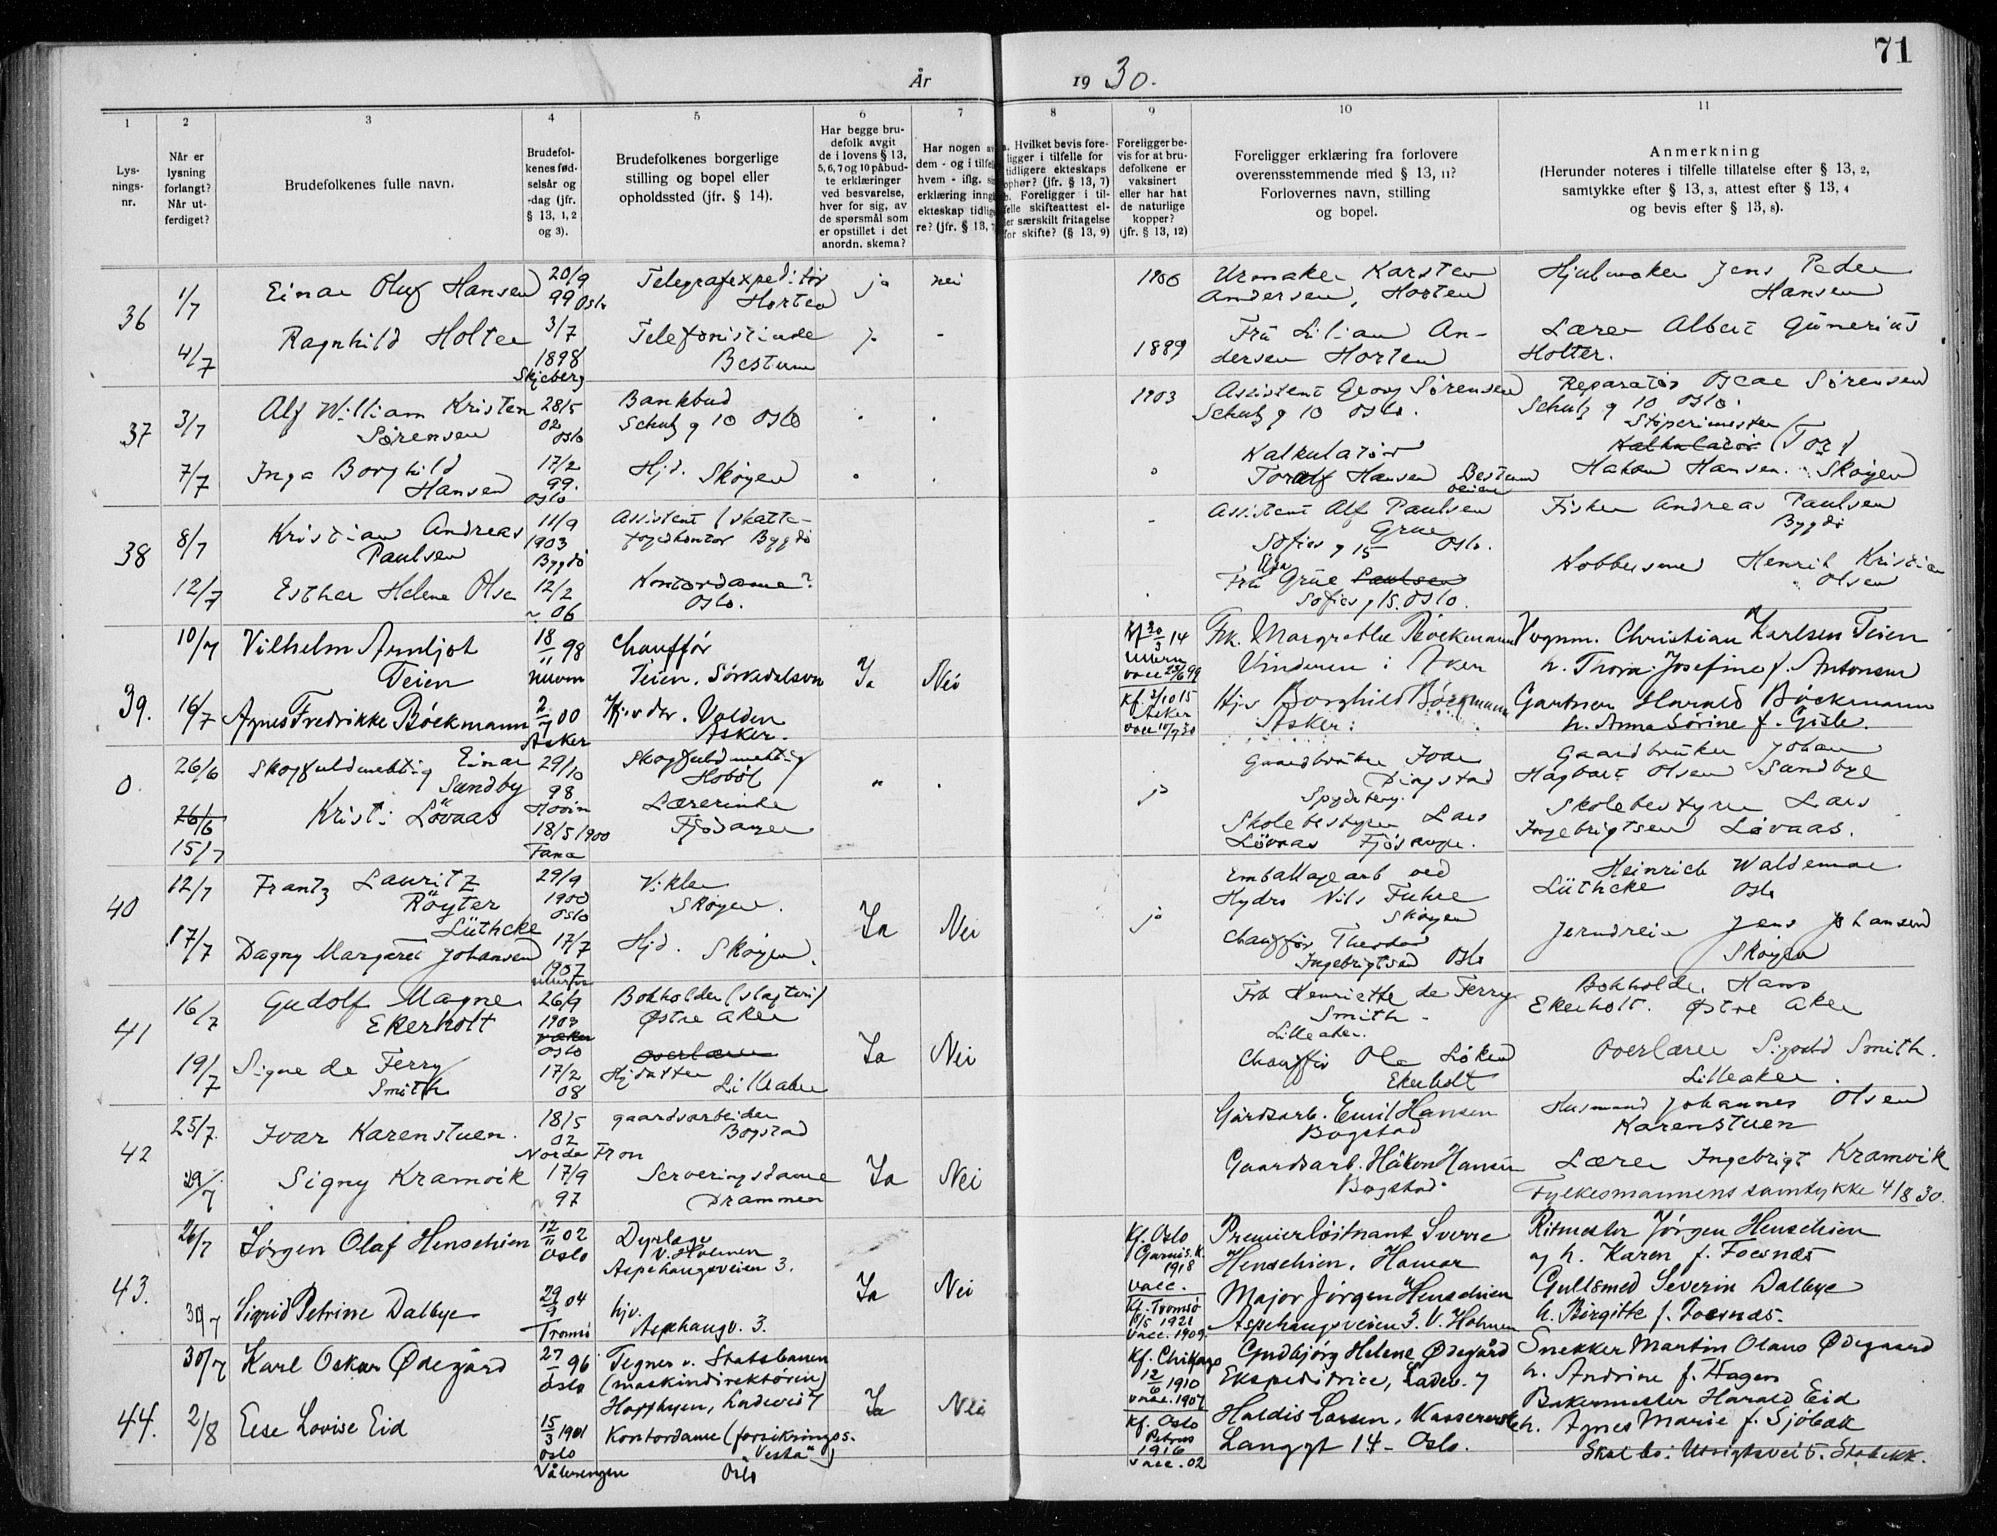 71
År 1930.
1 2 3 4 5 6 7 8 9 10 11
Lys-
nings-
nr.
Når er
lysning
forlangt?
Når ut-
ferdiget?
Brudefolkenes fulle navn.
Brudefol-
kenes fød-
selsår og
-dag (jfr.
§ 13, 1, 2
og 3).
Brudefolkenes borgerlige
stilling og bopel eller
opholdssted (jfr. § 14).
Har begge bru-
defolk avgit
de i lovens § 13,
5, 6, 7 og 10 påbud-
te erklæringer
ved besvarelse,
hver for sig, av
de spørsmål som
er opstillet i det
anordn. skema?
Har nogen av
dem - og i tilfelle
hvem - iflg.
erklæring inngå
ekteskap tidlige
re? (jfr. § 13, 7
a. Hvilket bevis fore-
ligger i tilfelle for
tidligere ekteskaps
ophør? (jfr. § 13, 7)
b. Foreligger i til-
felle skifteattest el-
ler særskilt fritagelse
for skifte? (§ 13, 9)
Foreligger be-
vis for at bru-
defolkene er
vaksinert
eller har hat
de naturlige
kopper?
(jfr. § 13, 12)
Foreligger erklæring fra forlovere
overensstemmende med § 13, 11?
Forlovernes navn, stilling
og bopel.
Anmerkning
(Herunder noteres i tilfelle tillatelse efter § 13, 2,
samtykke efter § 13, 3, attest efter § 13, 4
og bevis efter § 13, 8).
36
1/7
Einar Oluf Hansen
20/9
99 Oslo
Telegrafexpeditør
Horten
ja
nei
1900
Urmaker Karsten
Andersen, Horten
Hjulmaker Jens Peder
Hansen
4/7
Ragnhild Holter
3/7
1898
Skjeberg
Telefonistinde
Bestum
-
1889
Fru Lilian An-
dersen Horten
Lærer Albert Gunerius
Holter.
37
3/7
Alf William Kristen
Sørensen
28/5
02
Oslo
Bankbud
Schulz g 10 Oslo
1903
Assistent Georg Sørensen
Schulz g 10 Oslo.
Reparatør Oscar Sørensen
Schulz g 10 Oslo.
7/7
Inga Borghild
Hansen
17/2
99.
Oslo
Hjd. Skøyen
Kalkulatør
Toralf Hansen Bestum
veien
Støperimester
Kalkulatør (Tor)
Hakon Hansen. Skøyen
38
8/7
Kristian Andreas
Paulsen
11/9
1903
Bygdö
Assistent (skatte-
fogedkontor Bygdö
Assistent Alf Paulsen
Grue
Sofies g 15 Oslo.
Fisker Andreas Paulsen
Bygdö
12/7
Esther Helene Olsen
12/2
~ 06
Kontordame?
Oslo.
Fru Grue Paulsen
Sofies g 15. Oslo.
Kobbersmed Henrik Kristian
Olsen
39.
10/7
Vilhelm Arnljot
Teien
18/11 98
Ullern
Chauffør
Teien, Sørkedalsvn
Ja
Nei
Kf 30/3 14
Ullern
vacc 23/6 99
Frk. Margrethe Bøckmann
Vinderen i Aker
Vognm. Christian Karlsen Teien
h. Thora Josefine f. Antonsen
16/7
Agnes Fredrikke Bøckmann
2/7 00
Asker
Hj.v dtr. Valden
Asker.
Kf. 3/10 15
Asker
vacc 10/7 30
Hjv Borghild Bøckmann
Asker.
Gartner Harald Bøckmann
h. Anna Sörine f. Gisle.
0.
26/6
Skogfuldmektig Einar
Sandby
29/10
98
Hovin
Skogfuldmektig
Hobøl
ja
Gaardbruker Ivar
Dingstad
Spydeberg.
Gaardbruker Johan
Hagbart Olsen Sandbye
26/6
15/7
Kristi Lövaas
18/5 1900
Fana
Lærerinde
Fjösanger
Skolebestyrer Lars
Lövaas Fjösanger.
Skolebestyrer Lars
Ingebrigtsen Løvaas.
40
12/7
Frantz Lauritz
Röyter
Lüthcke
29/9
1900
Oslo
Vikler
Skøyen.
Ja
Nei
ja
Emballagearb ved
Hydro Nils Fuhre
Skøyen
Heinrich Waldemar
Lüthcke Oslo
17/7
Dagny Margaret Johansen
17/7
1907
Ullern
Hjd. Skøyen.
Chauffør Theodor
Ingebrigtsen Oslo
Jerndreier Jens Johansen
Skøyen
41
16/7
Gudolf Magne
Ekerholt
26/9
1903
Oslo
Bokholder (slagteri)
Østre Aker
Ja
Nei
Frk Henriette de Ferry
Smith
Lilleaker.
Bokholder Hans
Ekerholt. Østre Aker
19/7
Signe de Ferry
Smith
17/2
08
Overlærer
Hjdatter
Lilleaker
Chauffør Ole Løken
Ekerholt
Overlærer Sigvald Smith.
Lilleaker.
42
25/7.
Ivar Karenstuen.
18/5
02
Nordre Fron
gaardsarbeider
Bogstad
Gårdsarb. Emil Hansen
Bogstad
Husmand Johannes Olsen
Karenstuen
29/7
Signy Kramvik
17/9
97
Serveringsdame
Drammen
Ja
Nei
Gaardsarb. Håkon Hansen
Bogstad.
Lærer Ingebrigt Kramvik
Fylkesmannens samtykke 4/8 30.
43.
26/7
Jørgen Olaf Henschien
12/11 02
Oslo
Dyrlæge
V. Holmen
Aspehaugveien 3.
Ja
Nei
Kf. Oslo
Garnis.k.
1918
vacc.
Premierløitnant Sverre
Henschien, Hamar
Ritmester Jørgen Henschien
og h. Karen f. Foesnæs
30/7
Sigrid Petrine Dalbye
29/9 04
Tromsø
hjv.
Aspehaugv. 3.
Kf. Tromsø
1921
vacc. 1909.
Major Jørgen Henschien
Aspehaugveien 3. V. Holmen
Gullsmed Severin Dalbye
h. Birgitte f. Foesnæs.
44.
30/7
Karl Oskar Ødegård
27/1 96
Oslo
Tegner v. Statsbanen
(maskindirektøren)
Hoffsbyen, Ladevei 7
Ja
Nei
Kf. Chikago
12/6 1910
vacc. 1907
Gudbjørg Helene Ødegård
Ekspeditrice, Ladev. 7
Snekker Martin Olaus Ødegaard
h. Andrine f. Hagen
2/8
Else Lovise Eid
15/3 1901
Oslo
Vålerengen
Kontordame (forsikrings-
"Vesta")
Oslo
Kf. Oslo
Petrus
1916
vacc. 02
Haldis Larsen, Kassererske
Langgt 14 - Oslo.
Bakermester Harald Eid
h. Agnes Marie f. Sjöbæk
Skal bo: Utsigtsvei 5. Stabekk.